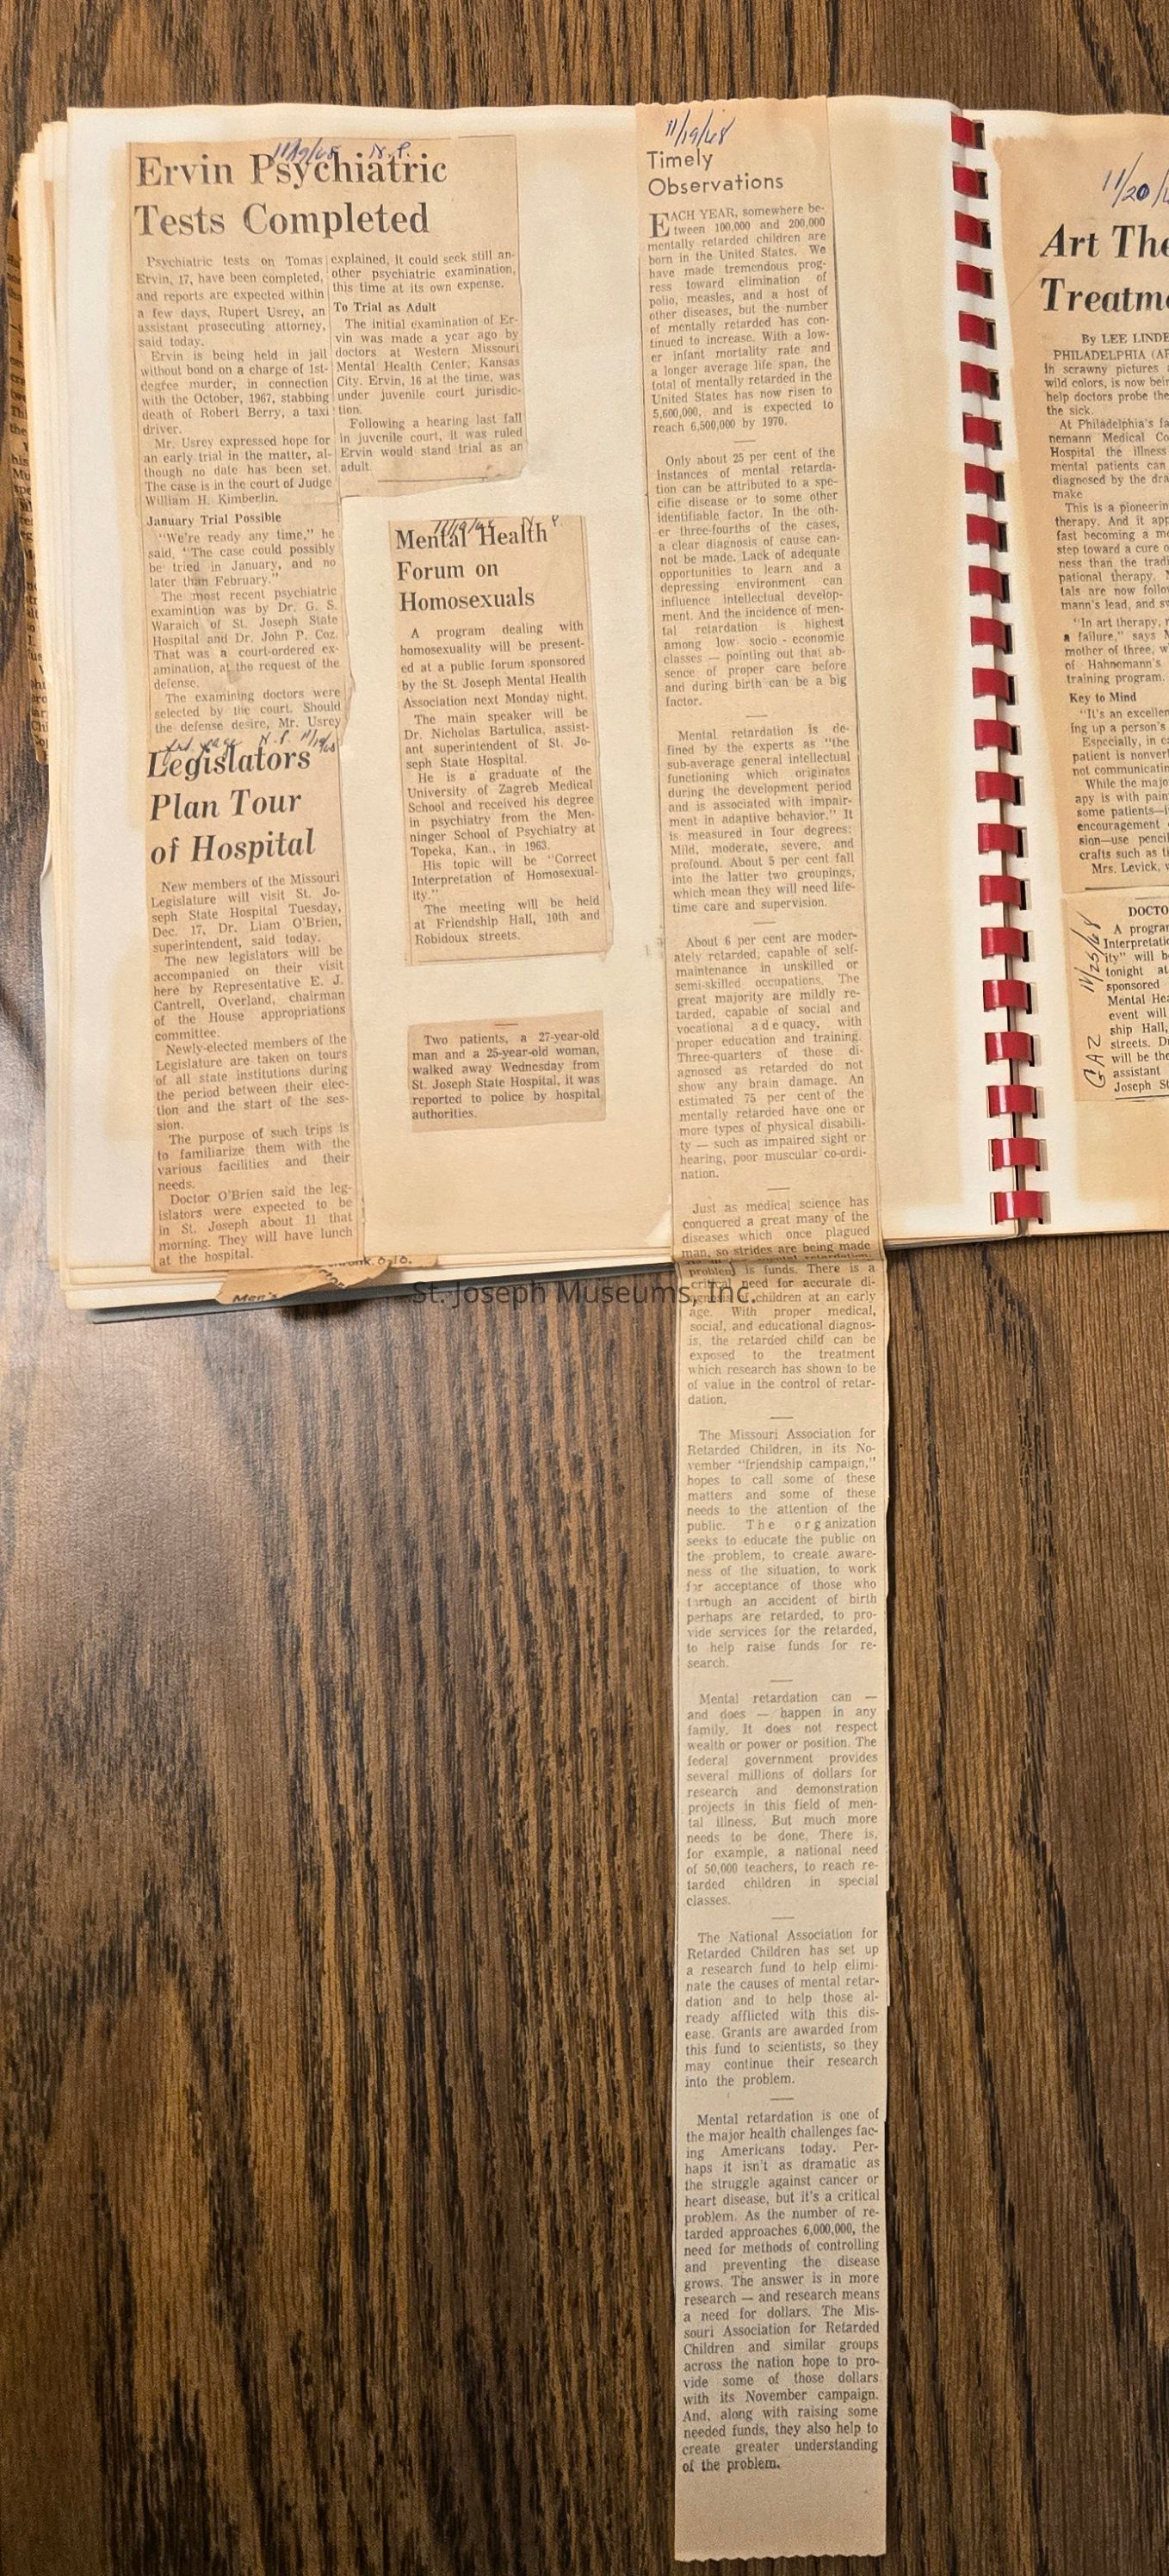 11/19/68 N.P.
Ervin Psychiatric
Tests Completed
Psychiatric tests on Tomas
Ervin, 17, have been completed,
and reports are expected within
a few days, Rupert Usrey, an
assistant prosecuting attorney,
said today.
Ervin is being held in jail
without bond on a charge of 1st-
degree murder, in connection
with the October, 1967, stabbing
death of Robert Berry, a taxi
driver.
Mr. Usrey expressed hope for
an early trial in the matter, al-
though no date has been set.
The case is in the court of Judge
William H. Kimberlin.
January Trial Possible
"We're ready any time," he
said, "The case could possibly
be tried in January, and no
later than February."
The most recent psychiatric
examintion was by Dr. G. S.
Waraich of St. Joseph State
Hospital and Dr. John P. Coz.
That was a court-ordered ex-
amination, at the request of the
defense.
The examining doctors were
selected by the court. Should
the defense desire, Mr. Usrey
explained, it could seek still an-
other psychiatric examination,
this time at its own expense.
To Trial as Adult
The initial examination of Er-
vin was made a year ago by
doctors at Western Missouri
Mental Health Center, Kansas
City. Ervin, 16 at the time, was
under juvenile court jurisdic-
tion.
Following a hearing last fall
in juvenile court, it was ruled
Ervin would stand trial as an
adult.
page N.P. 11/19/68
Legislators
Plan Tour
of Hospital
New members of the Missouri
Legislature will visit St. Jo-
seph State Hospital Tuesday,
Dec. 17, Dr. Liam O'Brien,
superintendent, said today.
The new legislators will be
accompanied on their visit
here by Representative E. J.
Cantrell, Overland, chairman
of the House appropriations
committee.
Newly-elected members of the
Legislature are taken on tours
of all state institutions during
the period between their elec-
tion and the start of the ses-
sion.
The purpose of such trips is
to familiarize them with the
various facilities and their
needs.
Doctor O'Brien said the leg-
islators were expected to be
in St. Joseph about 11 that
morning. They will have lunch
at the hospital.
11/19/68 N.P.
Mental Health
Forum on
Homosexuals
A program dealing with
homosexuality will be present-
ed at a public forum sponsored
by the St. Joseph Mental Health
Association next Monday night.
The main speaker will be
Dr. Nicholas Bartulica, assist-
ant superintendent of St. Jo-
seph State Hospital.
He is a graduate of the
University of Zagreb Medical
School and received his degree
in psychiatry from the Men-
ninger School of Psychiatry at
Topeka, Kan., in 1963.
His topic will be "Correct
Interpretation of Homosexual-
ity."
The meeting will be held
at Friendship Hall, 10th and
Robidoux streets.
Two patients, a 27-year-old
man and a 25-year-old woman,
walked away Wednesday from
St. Joseph State Hospital, it was
reported to police by hospital
authorities.
11/19/68
Timely
Observations
EACH YEAR, somewhere be-
tween 100,000 and 200,000
mentally retarded children are
born in the United States. We
have made tremendous prog-
ress toward elimination of
polio, measles, and a host of
other diseases, but the number
of mentally retarded has con-
tinued to increase. With a low-
er infant mortality rate and
a longer average life span, the
total of mentally retarded in the
United States has now risen to
5,600,000, and is expected to
reach 6,500,000 by 1970.
Only about 25 per cent of the
instances of mental retarda-
tion can be attributed to a spe-
cific disease or to some other
identifiable factor. In the oth-
er three-fourths of the cases,
a clear diagnosis of cause can-
not be made. Lack of adequate
opportunities to learn and a
depressing environment can
influence intellectual develop-
ment. And the incidence of men-
tal retardation is highest
among low socio-economic
classes — pointing out that ab-
sence of proper care before
and during birth can be a big
factor.
Mental retardation is de-
fined by the experts as "the
sub-average general intellectual
functioning which originates
during the development period
and is associated with impair-
ment in adaptive behavior." It
is measured in four degrees:
Mild, moderate, severe, and
profound. About 5 per cent fall
into the latter two groupings,
which mean they will need life-
time care and supervision.
About 6 per cent are moder-
ately retarded, capable of self-
maintenance in unskilled or
semi-skilled occupations. The
great majority are mildly re-
tarded, capable of social and
vocational adequacy, with
proper education and training.
Three-quarters of those di-
agnosed as retarded do not
show any brain damage. An
estimated 75 per cent of the
mentally retarded have one or
more types of physical disabili-
ty — such as impaired sight or
hearing, poor muscular co-ordi-
nation.
Just as medical science has
conquered a great many of the
diseases which once plagued
man, so strides are being made
problem is funds. There is a
critical need for accurate di-
agnosis children at an early
age. With proper medical,
social, and educational diagnos-
is, the retarded child can be
exposed to the treatment
which research has shown to be
of value in the control of retar-
dation.
The Missouri Association for
Retarded Children, in its No-
vember "friendship campaign,"
hopes to call some of these
matters and some of these
needs to the attention of the
public. The organization
seeks to educate the public on
the problem, to create aware-
ness of the situation, to work
for acceptance of those who
through an accident of birth
perhaps are retarded, to pro-
vide services for the retarded,
to help raise funds for re-
search.
Mental retardation can —
and does — happen in any
family. It does not respect
wealth or power or position. The
federal government provides
several millions of dollars for
research and demonstration
projects in this field of men-
tal illness. But much more
needs to be done. There is,
for example, a national need
of 50,000 teachers, to reach re-
tarded children in special
classes.
The National Association for
Retarded Children has set up
a research fund to help elimi-
nate the causes of mental retar-
dation and to help those al-
ready afflicted with this dis-
ease. Grants are awarded from
this fund to scientists, so they
may continue their research
into the problem.
Mental retardation is one of
the major health challenges fac-
ing Americans today. Per-
haps it isn't as dramatic as
the struggle against cancer or
heart disease, but it's a critical
problem. As the number of re-
tarded approaches 6,000,000, the
need for methods of controlling
and preventing the disease
grows. The answer is in more
research — and research means
a need for dollars. The Mis-
souri Association for Retarded
Children and similar groups
across the nation hope to pro-
vide some of those dollars
with its November campaign.
And, along with raising some
needed funds, they also help to
create greater understanding
of the problem.
St. Joseph Museums, Inc.
11/20/
Art The
Treatm
By LEE LINDE
PHILADELPHIA (AP
In scrawny pictures
wild colors, is now bein
help doctors probe the
the sick.
At Philadelphia's fa
nemann Medical Co
Hospital the illness
mental patients can
diagnosed by the dra
make
This is a pioneerin
therapy. And it app
fast becoming a me
step toward a cure o
ness than the tradi
pational therapy.
tals are now follow
mann's lead, and sv
"In art therapy,
a failure," says
mother of three, w
of Hahnemann's
training program.
Key to Mind
"It's an excellen
ing up a person's
Especially, in ca
patient is nonver
not communicatin
While the majo
apy is with pain
some patients—
encouragement
sion—use penci
crafts such as t
Mrs. Levick, w
GAZ 11/25/68
DOCTO
A progra
Interpretati
ity" will b
tonight at
sponsored
Mental Hea
event will
ship Hall,
streets. D
will be the
assistant
Joseph St